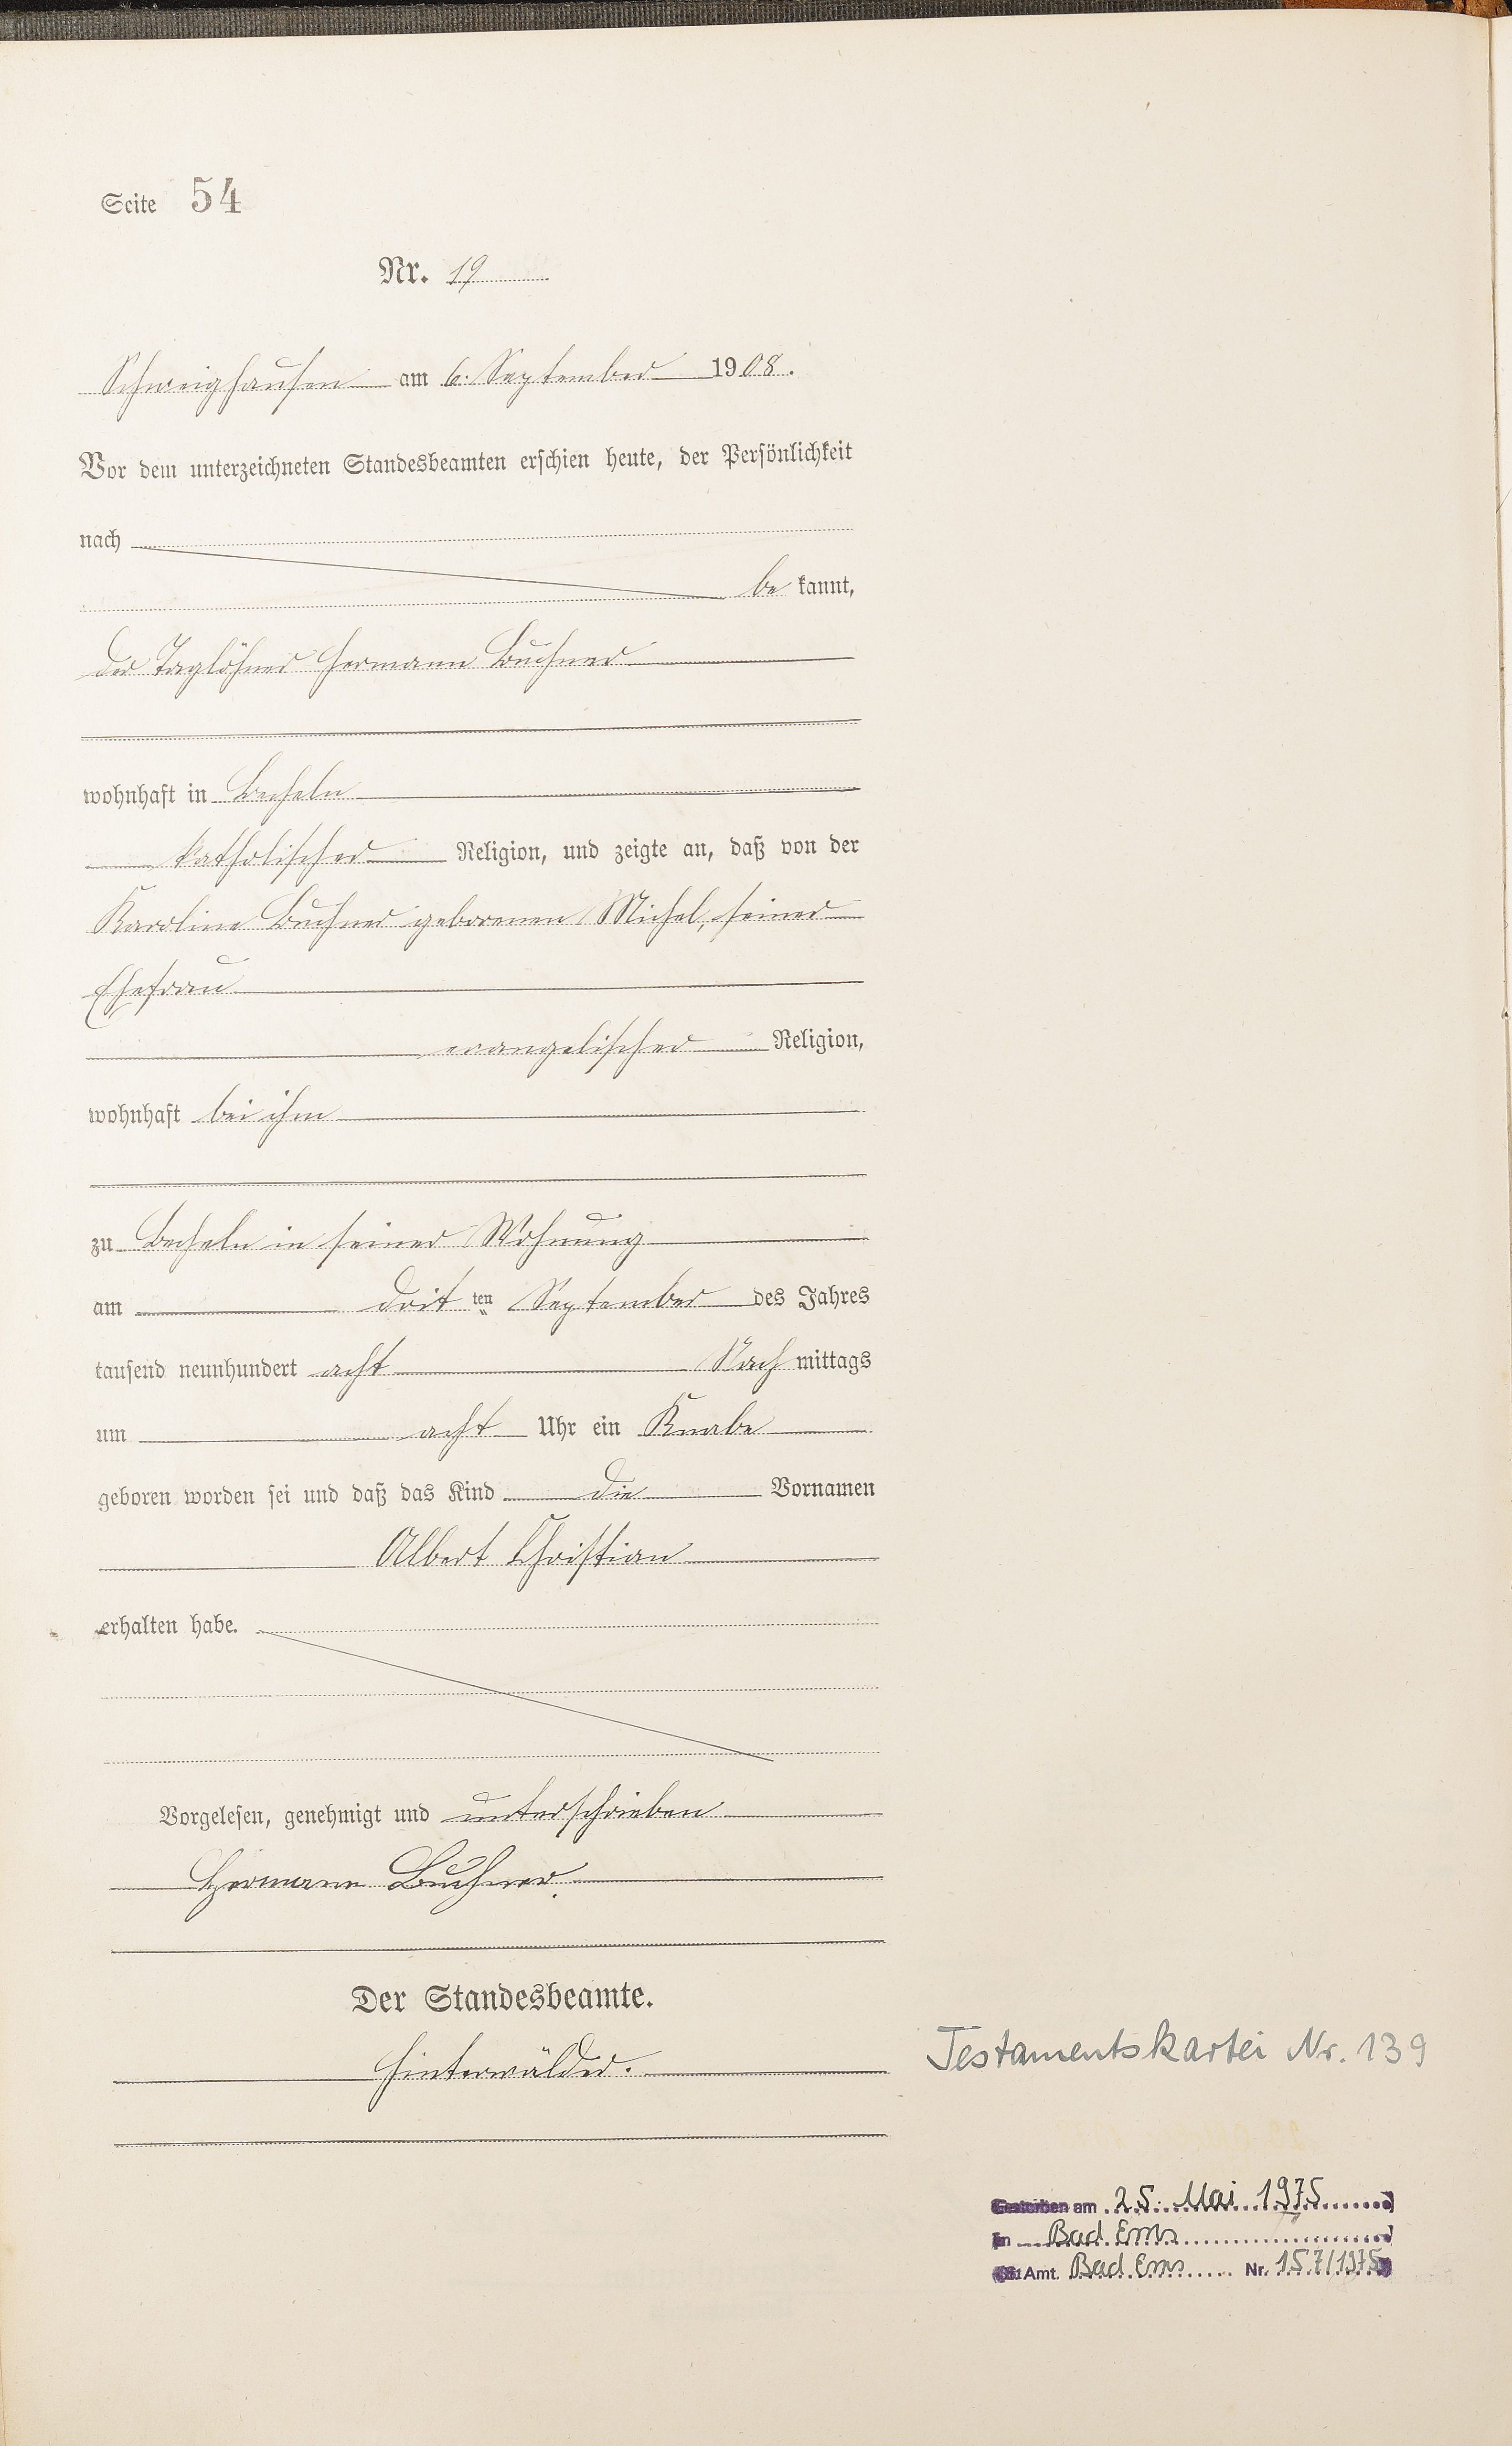 Seite 54
Nr. 19
Schweighausen am 6. September 1908.
Vor dem unterzeichneten Standesbeamten erschien heute, der Persönlichkeit
nach
be kannt,
der Taglöhner Hermann Buchner
wohnhaft in Becheln
katholischer Religion, und zeigte an, daß von der
Karoline Buchner geborenen Michel, seiner
Ehefrau
evangelischer Religion,
wohnhaft bei ihm
zu Becheln in seiner Wohnung
am drit ten September des Jahres
tausend neunhundert acht Nach mittags
um acht Uhr ein Knabe
geboren worden sei und daß das Kind die Vornamen
Albert Christian
erhalten habe.
Vorgelesen, genehmigt und unterschrieben
Hermann Buchner.
Der Standesbeamte.
Hinterwälder.
Testamentskartei Nr. 139
Gestorben am 25. Mai 1975
in Bad Ems
St.Amt. Bad Ems Nr. 157/1975